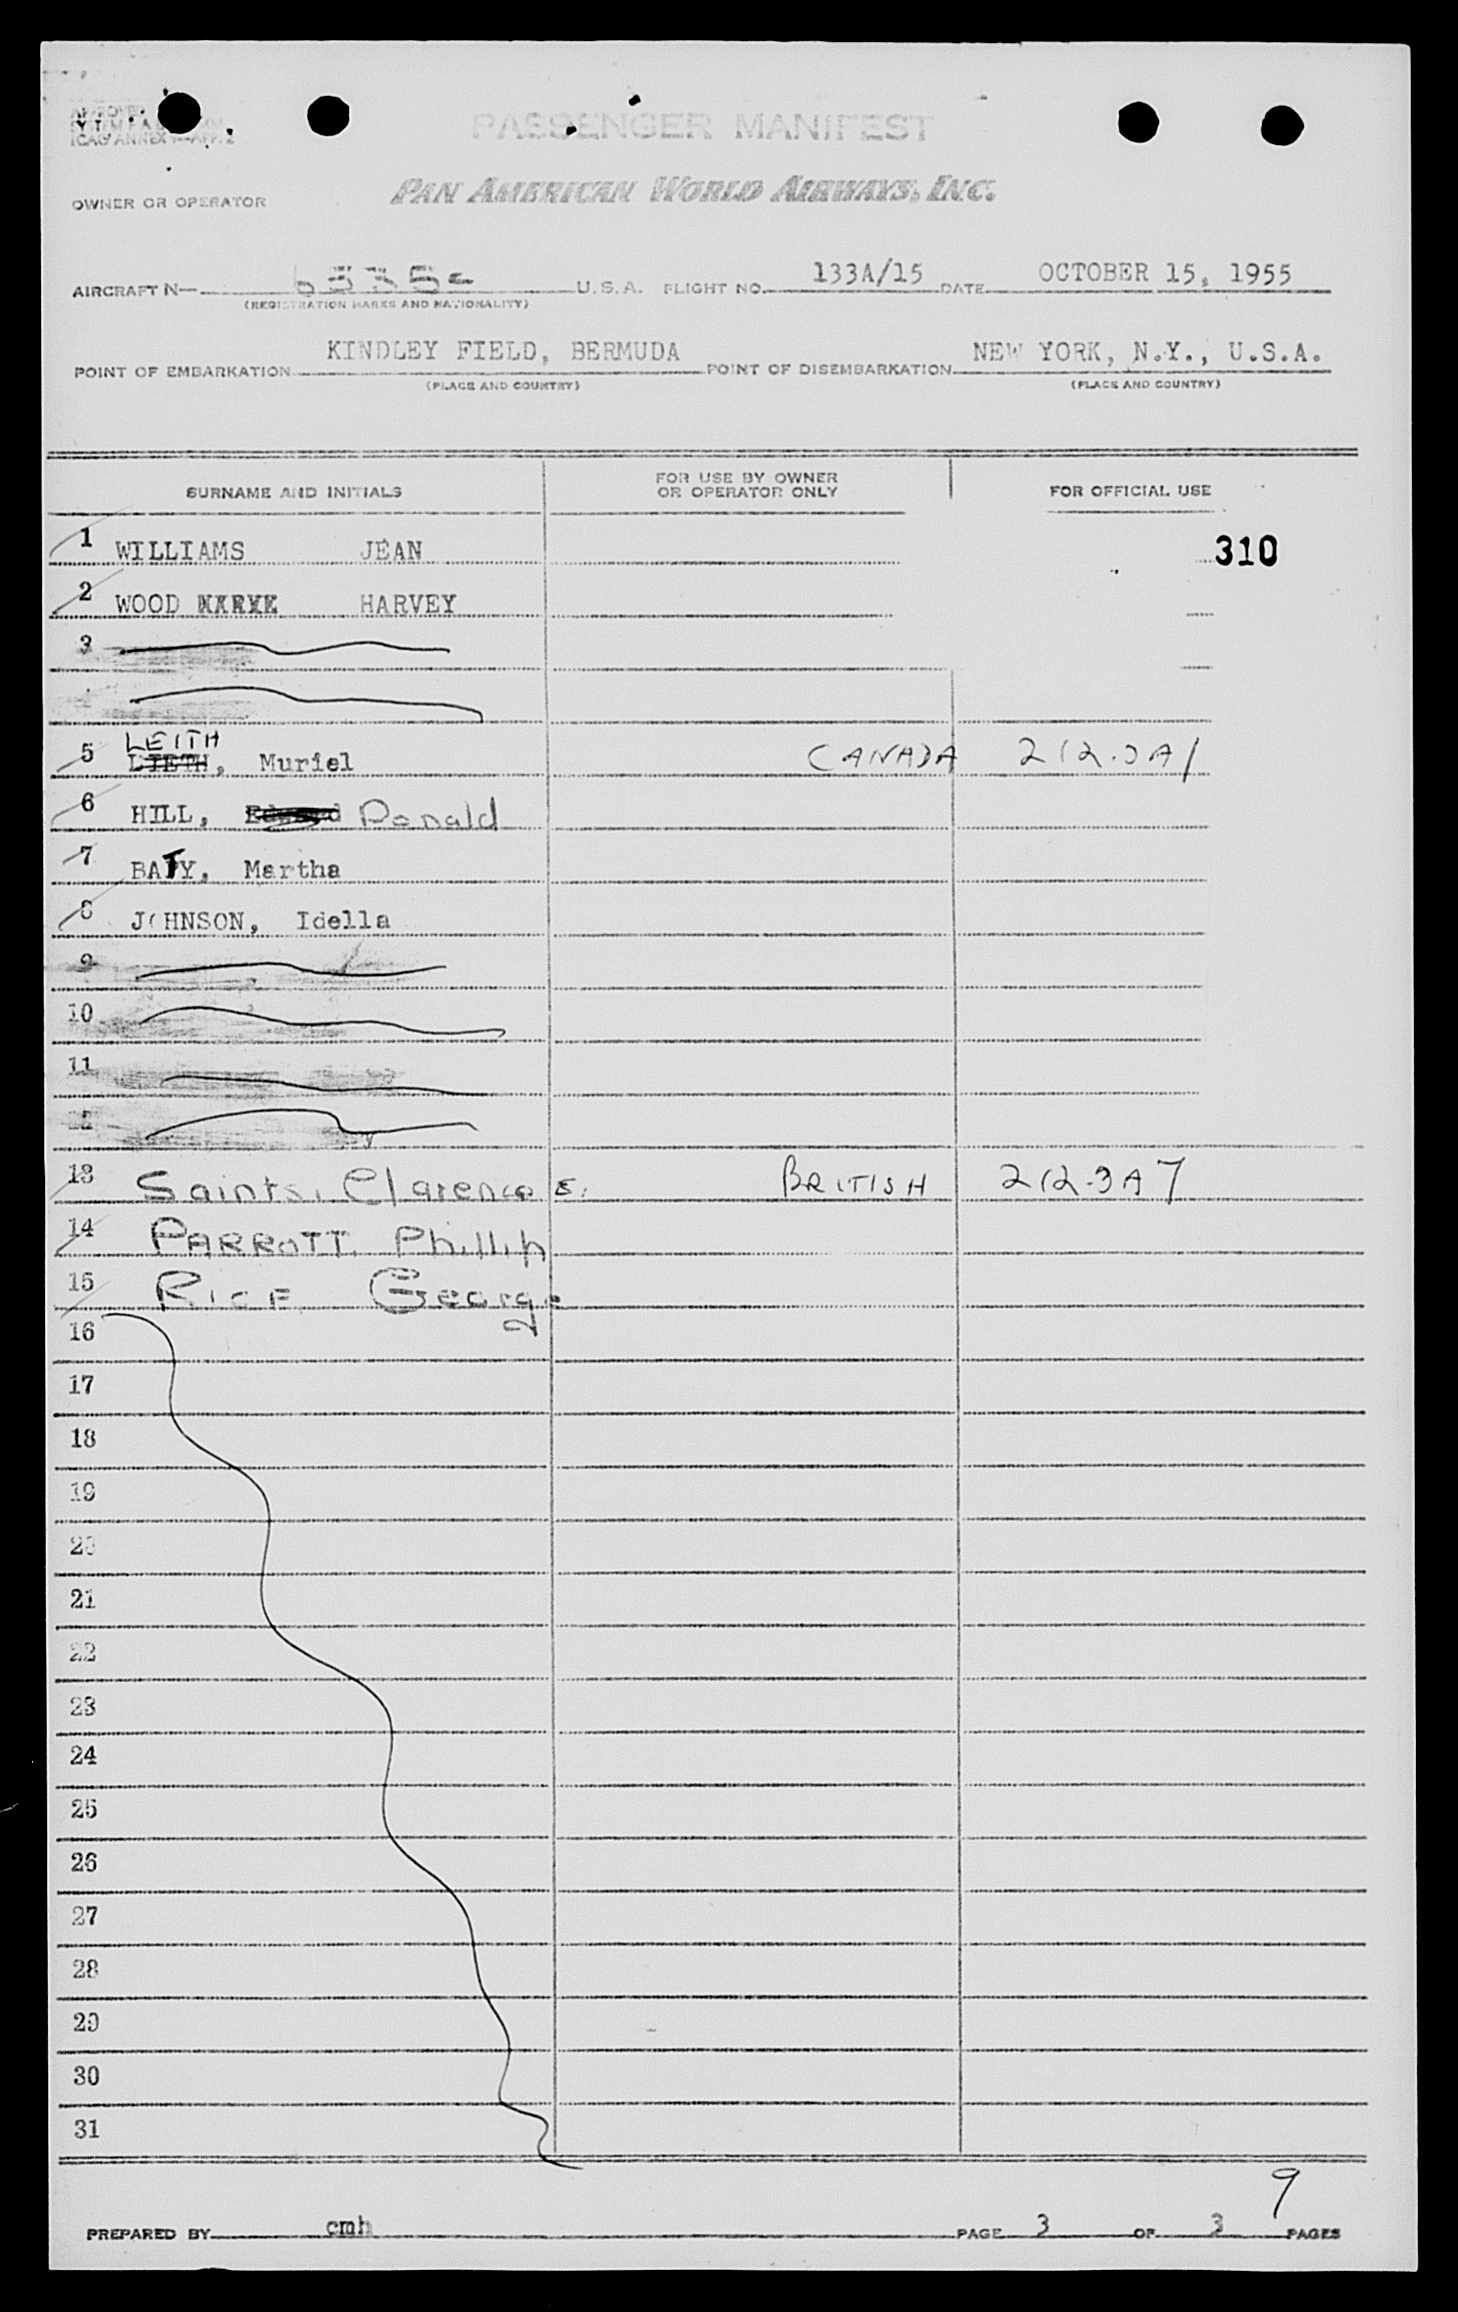 PASSENGER MANIFEST
OWNER OR OPERATOR PAN AMERICAN WORLD AIRWAYS, INC.
AIRCRAFT N— U.S.A. FLIGHT NO. 133A/15 DATE OCTOBER 15, 1955
(REGISTRATION MARKS AND NATIONALITY)
POINT OF EMBARKATION KINDLEY FIELD, BERMUDA POINT OF DISEMBARKATION NEW YORK, N.Y., U.S.A.
(PLACE AND COUNTRY) (PLACE AND COUNTRY)
SURNAME AND INITIALS FOR USE BY OWNER OR OPERATOR ONLY FOR OFFICIAL USE
1 WILLIAMS JEAN 310
2 WOOD HARVEY
3
LEITH
5 LIETH, Muriel CANADA 212.3A1
6 HILL, Donald
7 BATY, Martha
8 JOHNSON, Idella
9
10
11
12
13 Saints, Clarence E. BRITISH 212.3A7
14 PARROTT, Phillip
15 RICE, George
16
17
18
19
20
21
22
23
24
25
26
27
28
29
30
31
9
PREPARED BY cmh PAGE 3 OF 3 PAGES